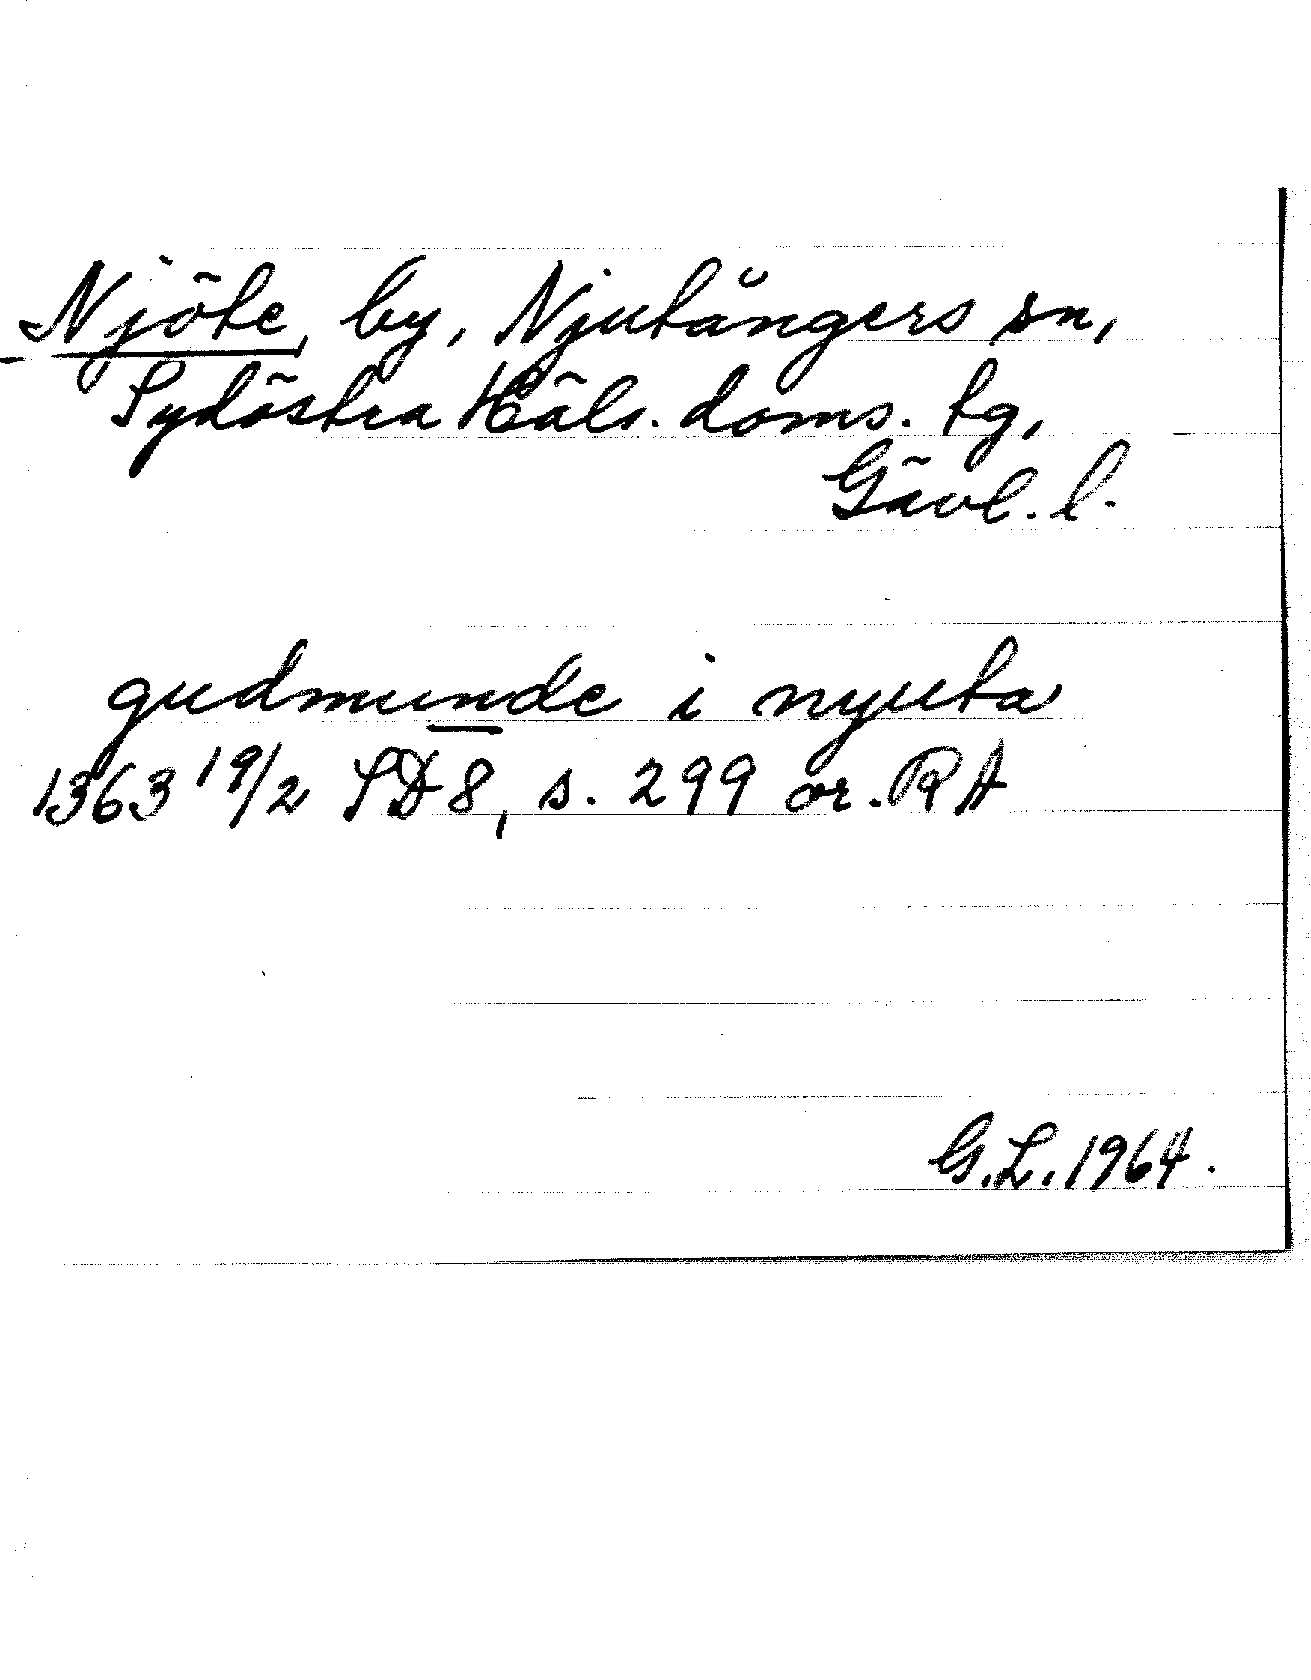 Njöte, by, Njutångers sn,
Sydöstra Häls. doms. tg,
Gävl. l.
gudmunde i nyuta
1363 19/2 SD 8, s. 299 or. RA
G.L. 1964.